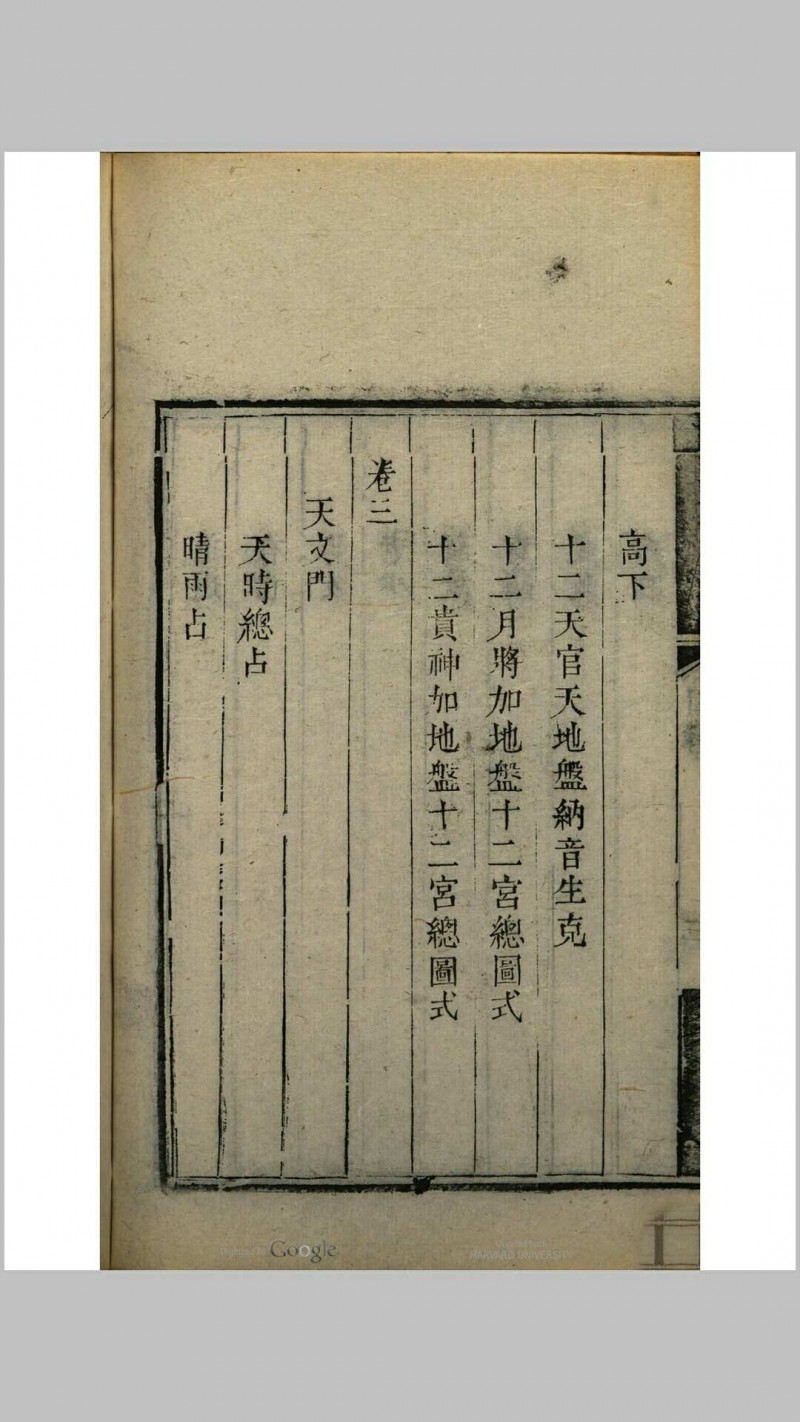 高下
十二天官天地盤納音生克
十二月將加地盤十二宮總圖式
十二貴神加地盤十二宮總圖式
卷三
天文門
天時總占
晴雨占
Google
HARVARD UNIVERSITY